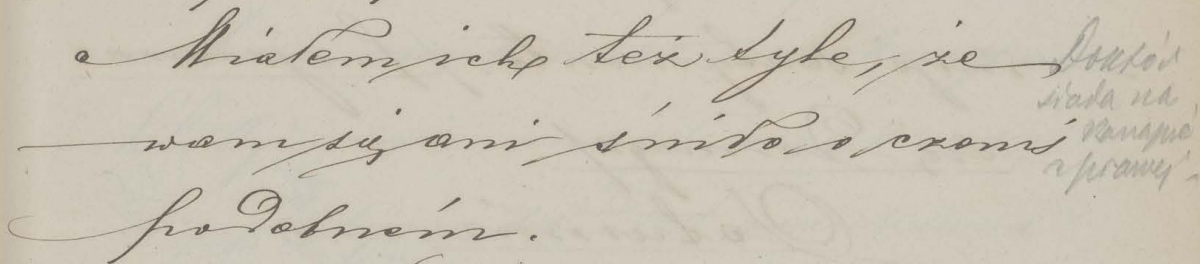 Miałem ich też tyle, że
wam się ani śniło o czemś
podobném.
Doktór
siada na
kanapie
z prawej